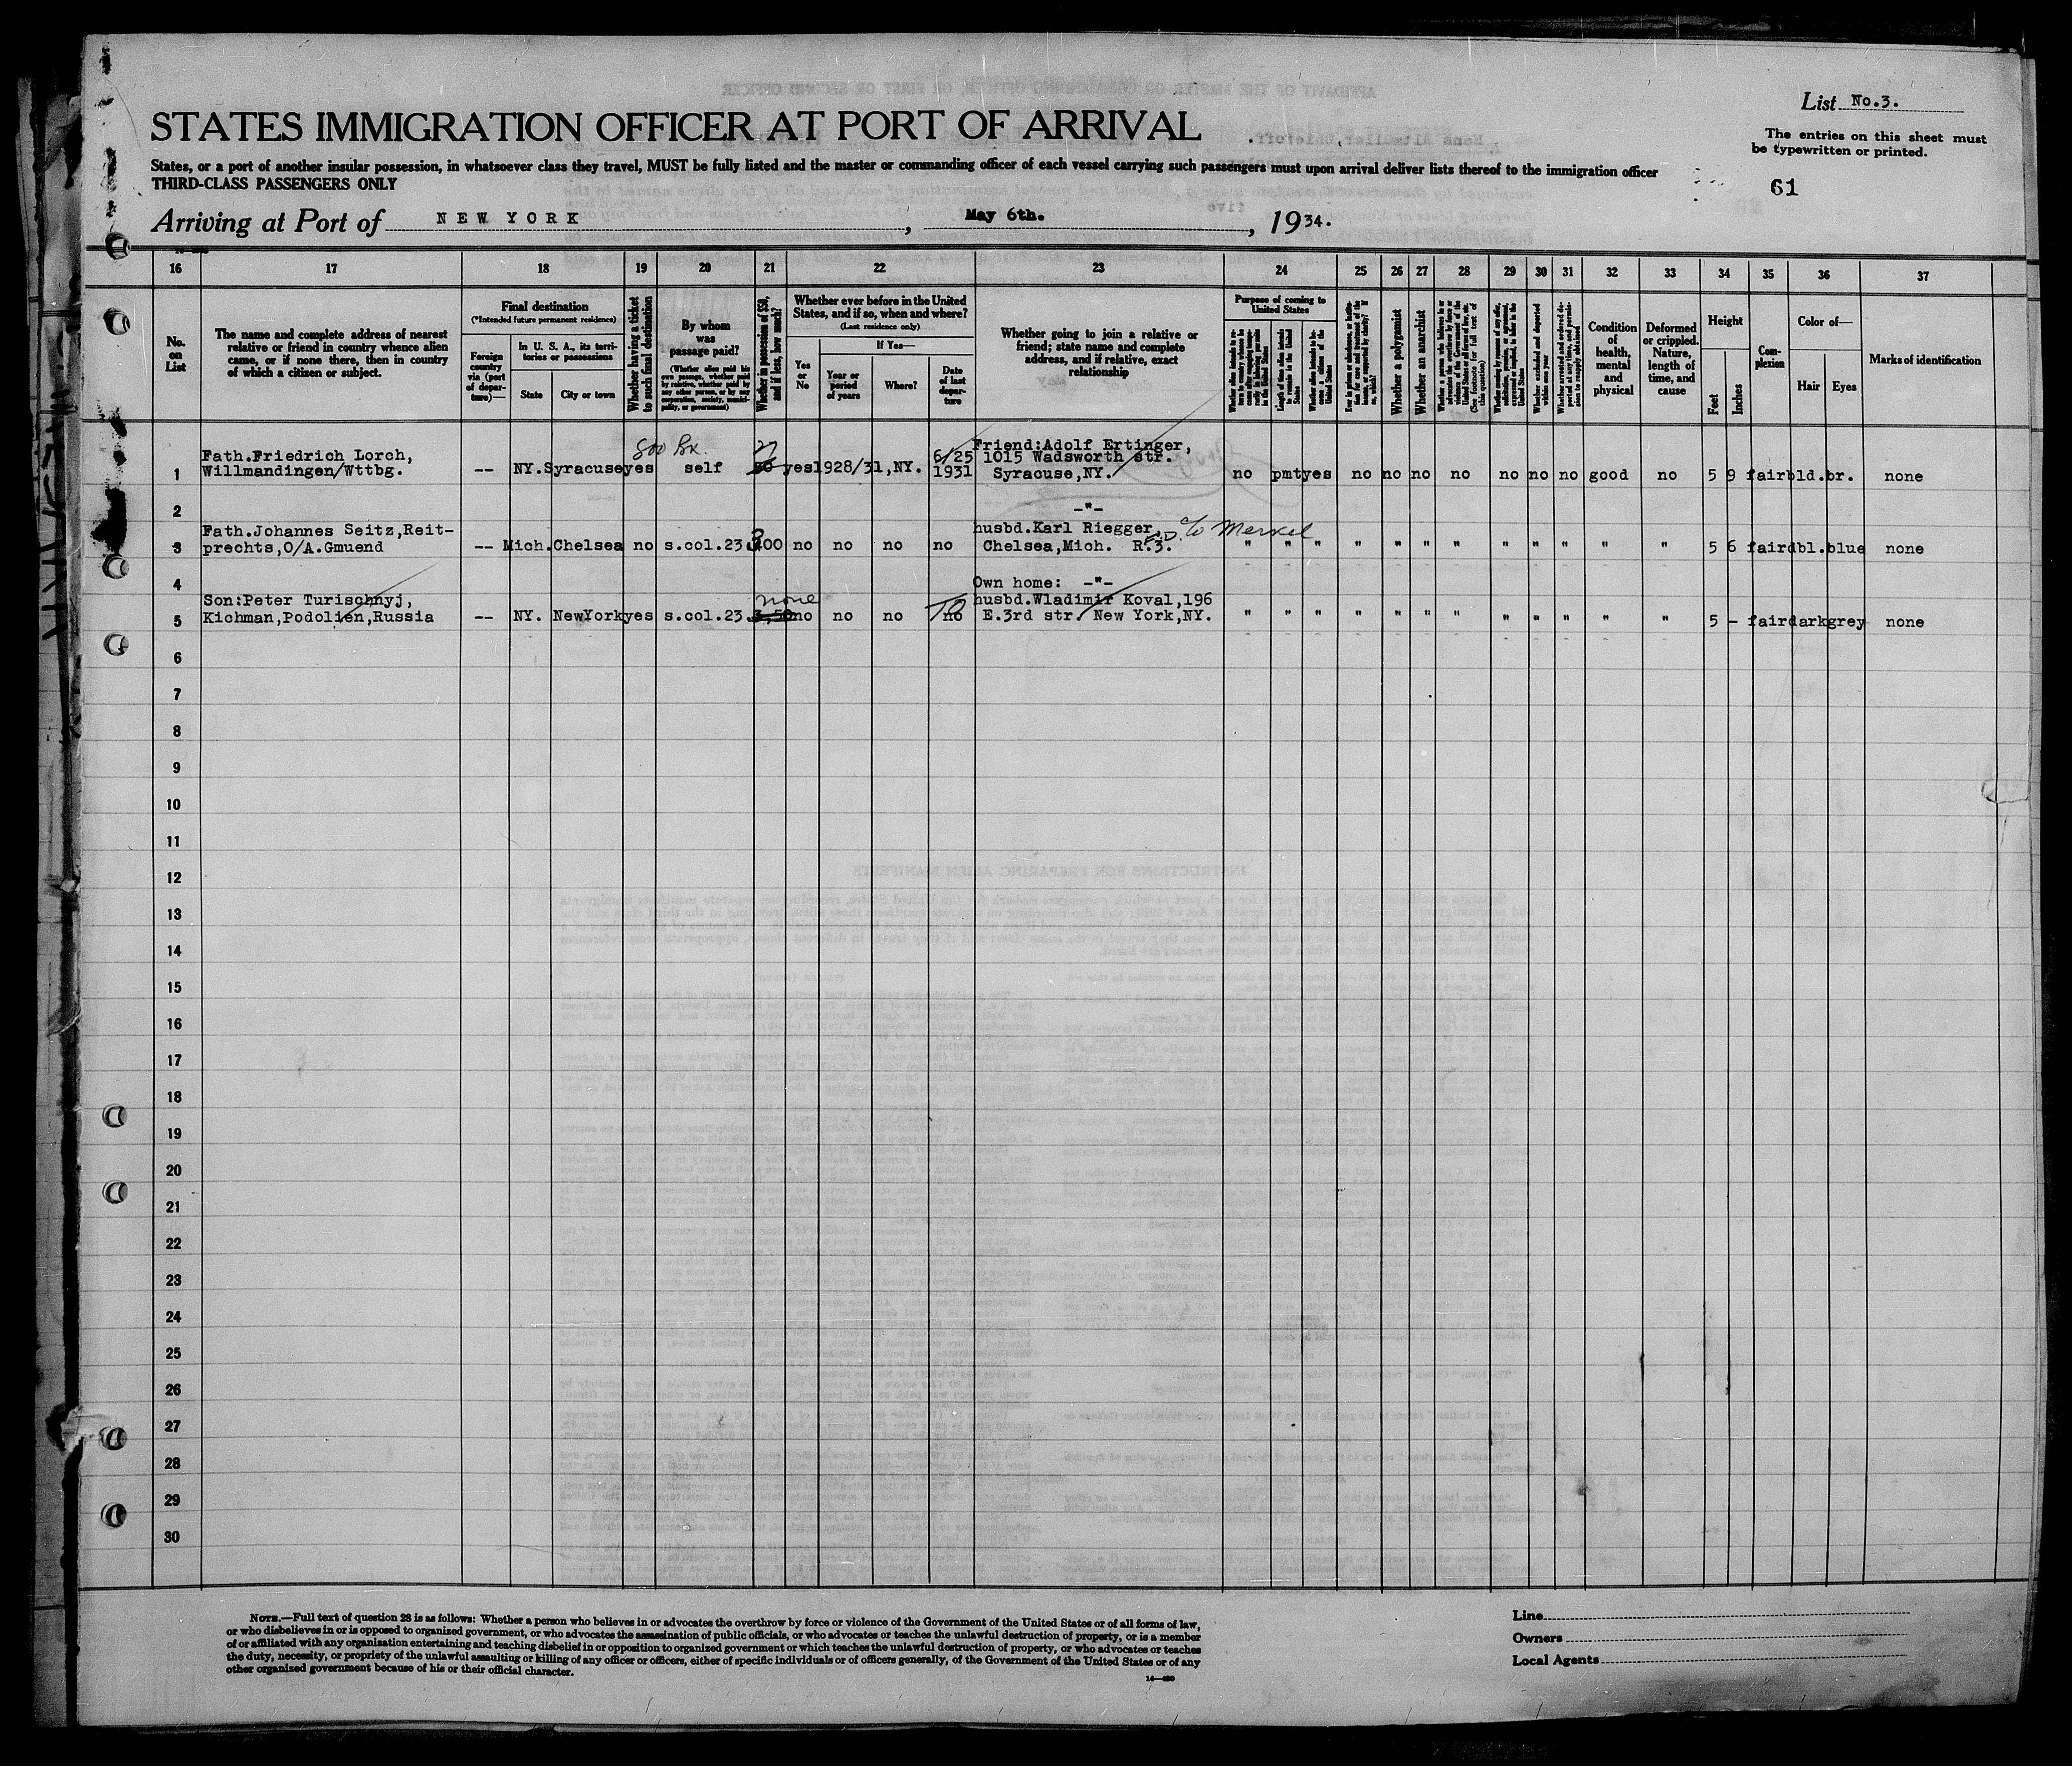 List No.3.
STATES IMMIGRATION OFFICER AT PORT OF ARRIVAL
The entries on this sheet must
be typewritten or printed.
States, or a port of another insular possession, in whatsoever class they travel, MUST be fully listed and the master or commanding officer of each vessel carrying such passengers must upon arrival deliver lists thereof to the immigration officer
THIRD-CLASS PASSENGERS ONLY
61
Arriving at Port of NEW YORK, May 6th., 1934.
16 17 18 19 20 21 22 23 24 25 26 27 28 29 30 31 32 33 34 35 36 37
No. on List
The name and complete address of nearest
relative or friend in country whence alien
came, or if none there, then in country
of which a citizen or subject.
Final destination
(*Intended future permanent residence)
Foreign country via (port of departure)—
In U. S. A., its territories or possessions
State
City or town
Whether having a ticket to such final destination
By whom was passage paid?
(Whether alien paid his own passage, whether paid by relative, whether paid by any other person, or by any corporation, society, municipality, or government)
Whether in possession of $50, and if less, how much?
Whether ever before in the United
States, and if so, when and where?
(Last residence only)
Yes or No
If Yes—
Year or period of years
Where?
Date of last departure
Whether going to join a relative or
friend; state name and complete
address, and if relative, exact
relationship
Purpose of coming to United States
Whether a polygamist
Whether an anarchist
Condition of health, mental and physical
Deformed or crippled. Nature, length of time, and cause
Height
Feet
Inches
Complexion
Color of—
Hair
Eyes
Marks of identification
1 Fath.Friedrich Lorch,
Willmandingen/Wttbg. -- NY. Syracuse yes self 27 50 yes 1928/31, NY. 6/25 1931
Friend:Adolf Ertinger,
1015 Wadsworth str.
Syracuse,NY. no pmt yes no no no no no no no good no 5 9 fair bld. br. none
2 -"-
3 Fath.Johannes Seitz,Reit-
prechts,O/A.Gmuend -- Mich. Chelsea no s.col.23 no no no no
husbd.Karl Riegger, c/o Merkel
Chelsea,Mich. R.3. " " " " " " " " " " " " 5 6 fair dbl. blue none
4 Own home: -"-
5 Son:Peter Turischnyj,
Kichman,Podolien,Russia -- NY. NewYork yes s.col.23 none 3,50 no no no no
husbd.Wladimir Koval,196
E.3rd str. New York,NY. " " " " " " " " " " " " 5 - fair dark grey none
6
7
8
9
10
11
12
13
14
15
16
17
18
19
20
21
22
23
24
25
26
27
28
29
30
NOTE.—Full text of question 28 is as follows: Whether a person who believes in or advocates the overthrow by force or violence of the Government of the United States or of all forms of law,
or who disbelieves in or is opposed to organized government, or who advocates the assassination of public officials, or who advocates or teaches the unlawful destruction of property, or is a member
of or affiliated with any organization entertaining and teaching disbelief in or opposition to organized government or which teaches the unlawful destruction of property, or who advocates or teaches
the duty, necessity, or propriety of the unlawful assaulting or killing of any officer or officers, either of specific individuals or of officers generally, of the Government of the United States or of any
other organized government because of his or their official character.
Line
Owners
Local Agents